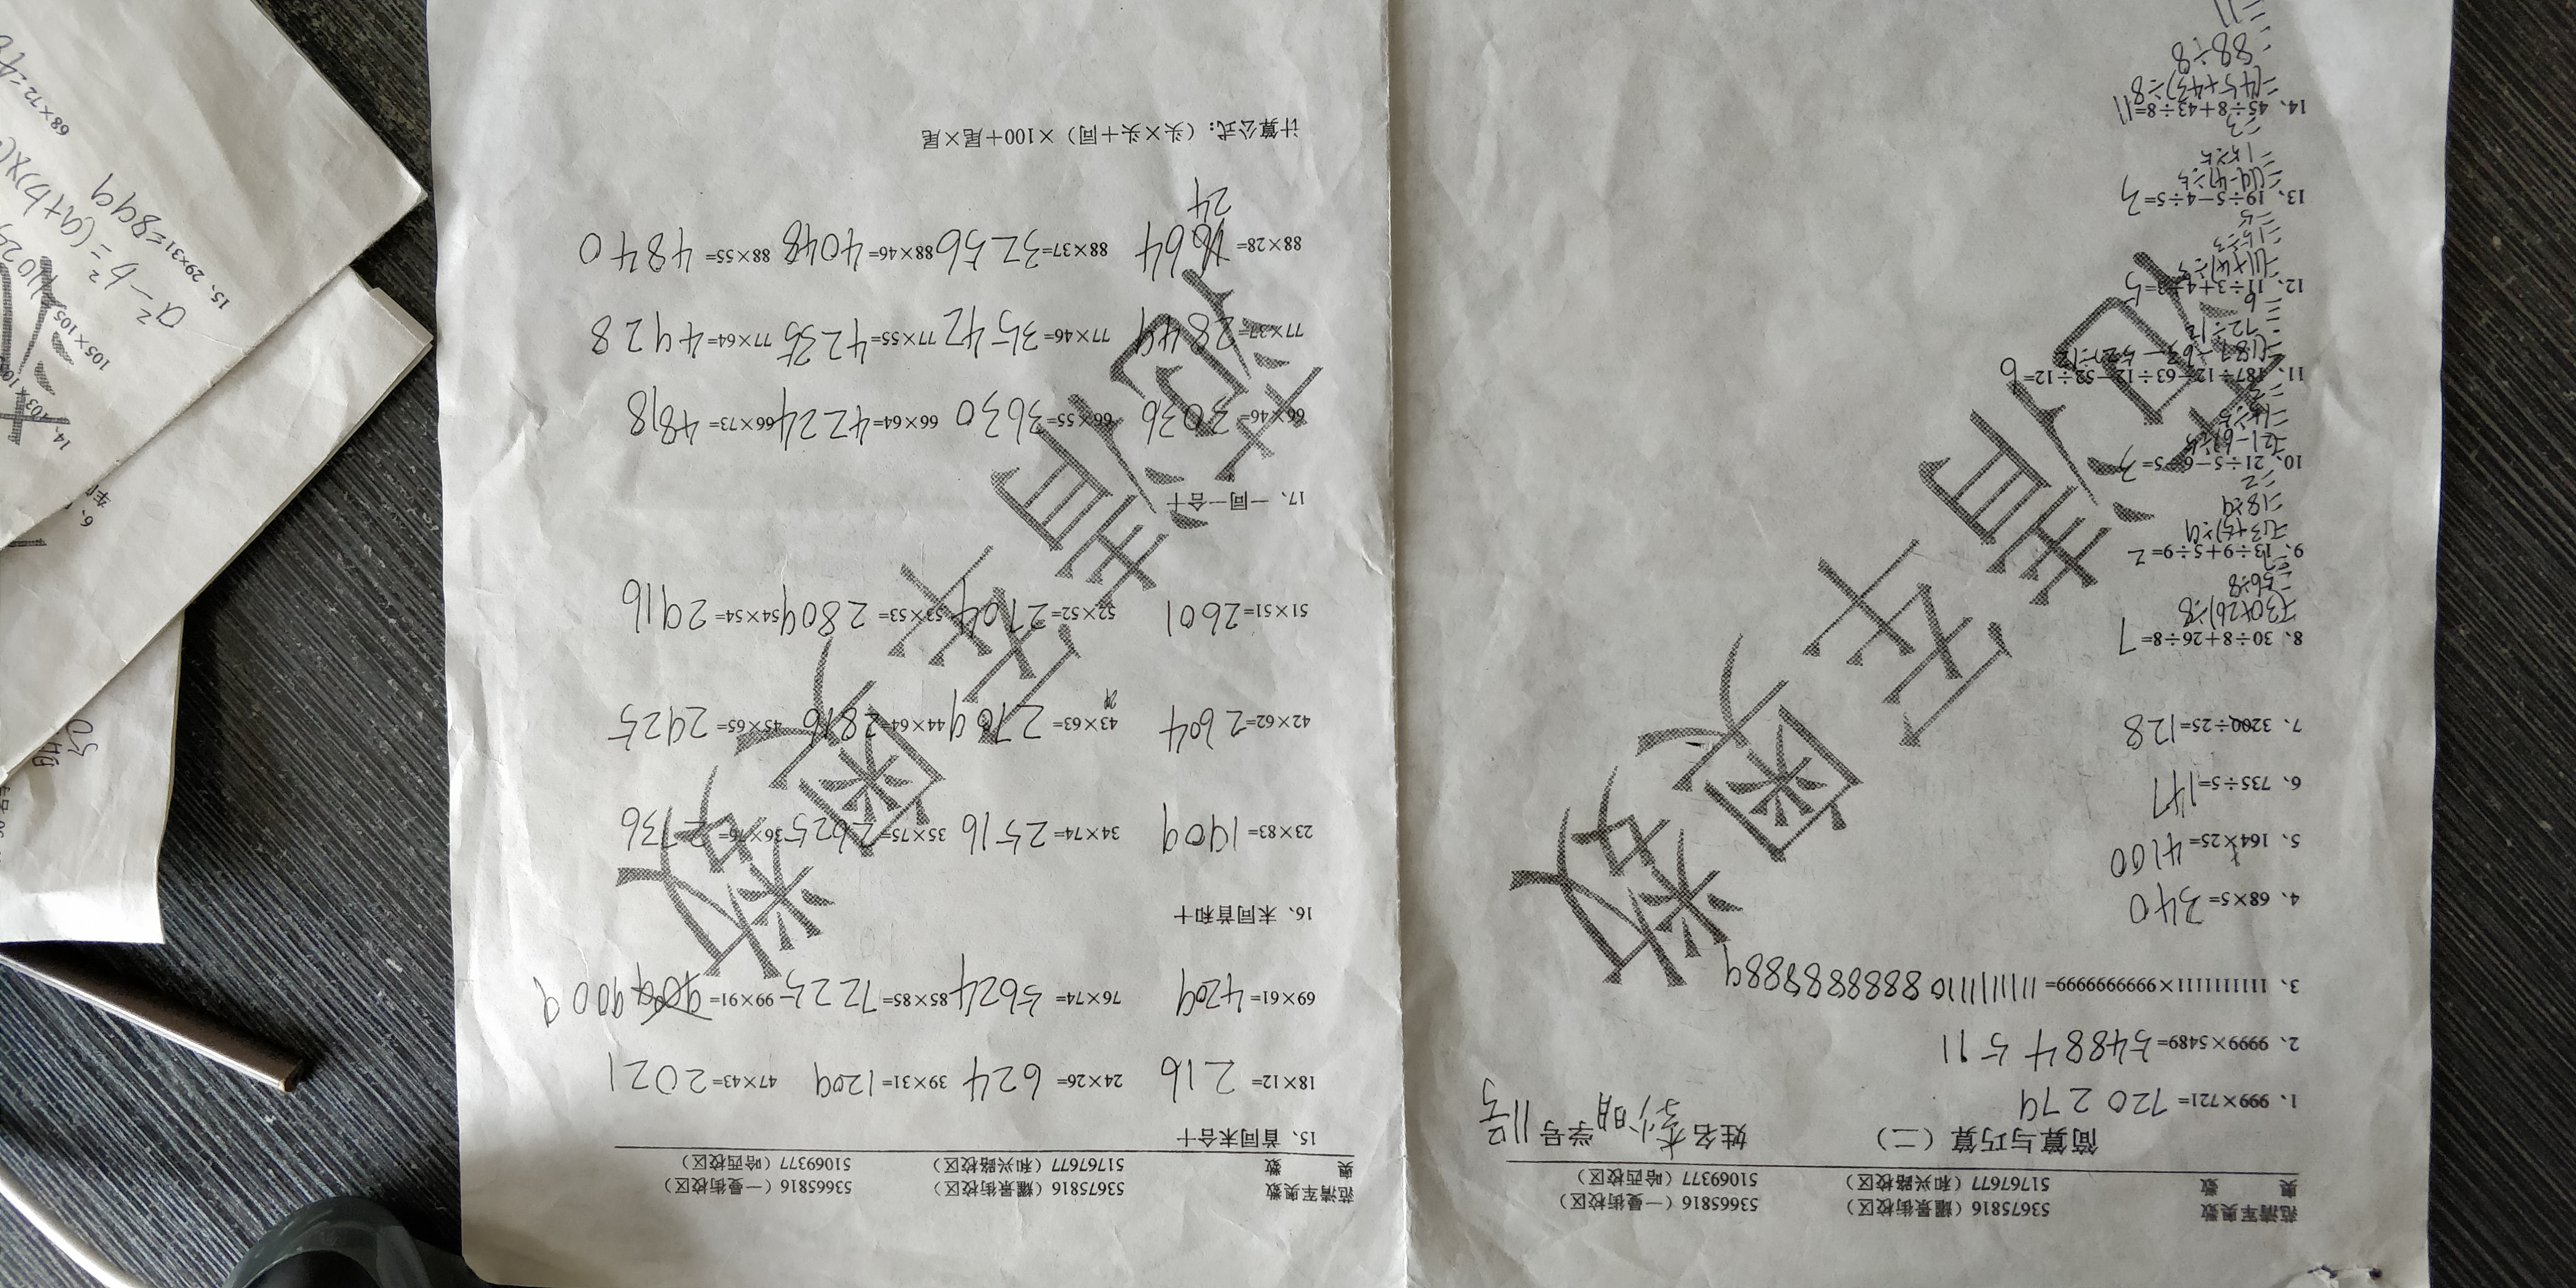 范清军奥数 53675816（耀景街校区） 53665816（一曼街校区）
奥 数 51767677（和兴路校区） 51069377（哈西校区）
简算与巧算（二） 姓名 学号11号
1、999×721=720279
2、9999×5489=54884511
3、1111111111×9999999999=11111111108888888889
4、68×5=340
5、164×25=4100
6、735÷5=147
7、3200÷25=128
8、30÷8+26÷8=7
=(30+26)÷8
=56÷8
=7
9、13÷9+5÷9=2
=(13+5)÷9
=18÷9
=2
10、21÷5-6÷5=3
=(21-6)÷5
=15÷5
=3
11、187÷12-63÷12-52÷12=6
=(187-63-52)÷12
=72÷12
=6
12、11÷3+4÷3=5
=(11+4)÷3
=15÷3
=5
13、19÷5-4÷5=3
=(19-4)÷5
=15÷5
=3
14、45÷8+43÷8=11
=(45+43)÷8
=88÷8
=11
范清军奥数 53675816（耀景街校区） 53665816（一曼街校区）
奥 数 51767677（和兴路校区） 51069377（哈西校区）
15、首同末合十
18×12=216 24×26=624 39×31=1209 47×43=2021
69×61=4209 76×74=5624 85×85=7225 99×91=9009
16、末同首和十
23×83=1909 34×74=2516 35×75=2625 36×76=2736
42×62=2604 43×63=2709 44×64=2816 45×65=2925
51×51=2601 52×52=2704 53×53=2809 54×54=2916
17、一同一合十
66×46=3036 66×55=3630 66×64=4224 66×73=4818
77×37=2849 77×46=3542 77×55=4235 77×64=4928
88×28=64 88×37=3256 88×46=4048 88×55=4840
24
计算公式：（头×头+同）×100+尾×尾
15、29×31=899
a²-b²=(a+b)×(
68×72=4
105×105
14、103×10